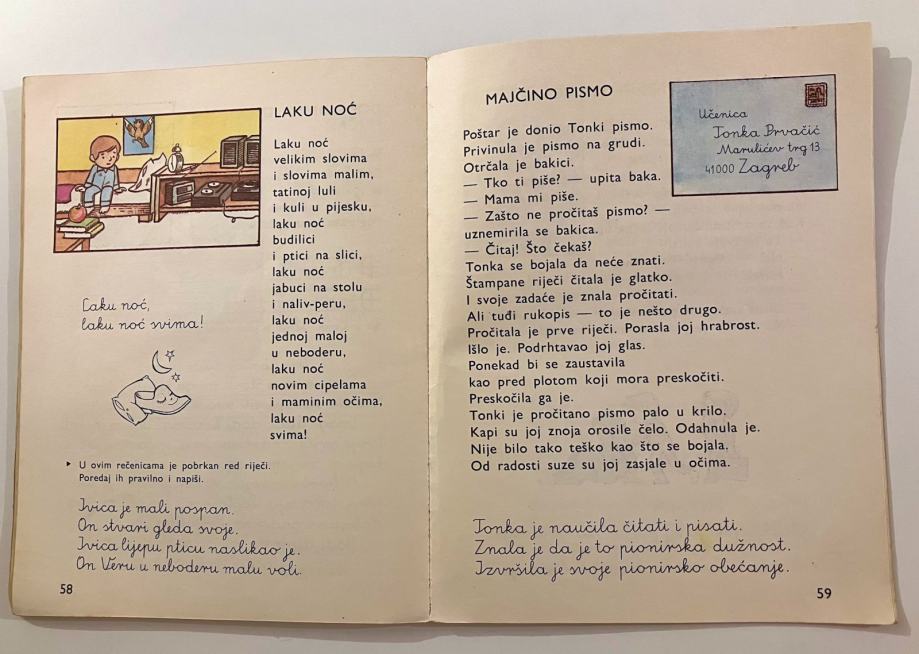 LAKU NOĆ
Laku noć
velikim slovima
i slovima malim,
tatinoj luli
i kuli u pijesku,
laku noć
budilici
i ptici na slici,
laku noć
jabuci na stolu
i naliv-peru,
laku noć
jednoj maloj
u neboderu,
laku noć
novim cipelama
i maminim očima,
laku noć
svima!
Laku noć,
laku noć svima!
U ovim rečenicama je pobrkan red riječi.
Poredaj ih pravilno i napiši.
Ivica je mali pospan.
On stvari gleda svoje.
Ivica lijepu pticu naslikao je.
On Veru u neboderu malu voli.
58
MAJČINO PISMO
Učenica
Tonka Prvačić
Marulićev trg 13
41000 Zagreb
Poštar je donio Tonki pismo.
Privinula je pismo na grudi.
Otrčala je bakici.
— Tko ti piše? — upita baka.
— Mama mi piše.
— Zašto ne pročitaš pismo? —
uznemirila se bakica.
— Čitaj! Što čekaš?
Tonka se bojala da neće znati.
Štampane riječi čitala je glatko.
I svoje zadaće je znala pročitati.
Ali tuđi rukopis — to je nešto drugo.
Pročitala je prve riječi. Porasla joj hrabrost.
Išlo je. Podrhtavao joj glas.
Ponekad bi se zaustavila
kao pred plotom koji mora preskočiti.
Preskočila ga je.
Tonki je pročitano pismo palo u krilo.
Kapi su joj znoja orosile čelo. Odahnula je.
Nije bilo tako teško kao što se bojala.
Od radosti suze su joj zasjale u očima.
Tonka je naučila čitati i pisati.
Znala je da je to pionirska dužnost.
Izvršila je svoje pionirsko obećanje.
59